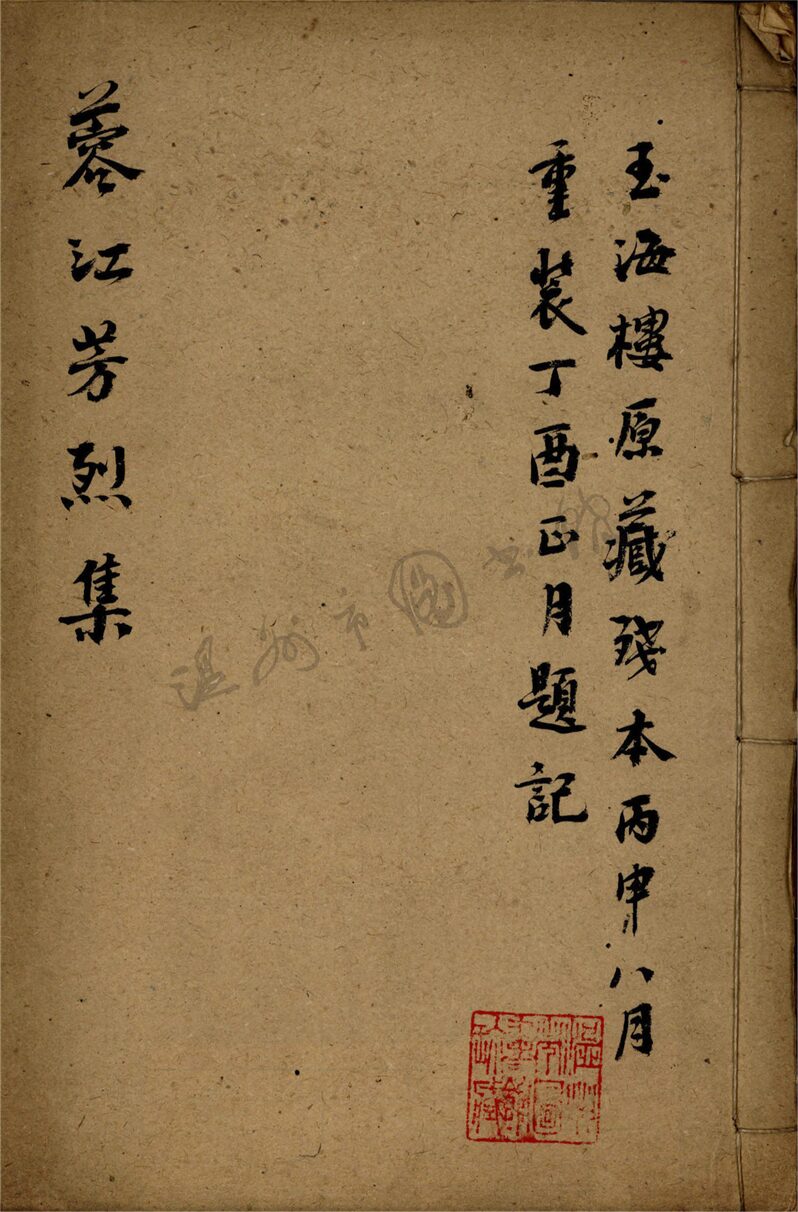 玉海樓原藏殘本丙申八月
重裝丁酉正月題記
蓉江芳烈集
温州市圖書館